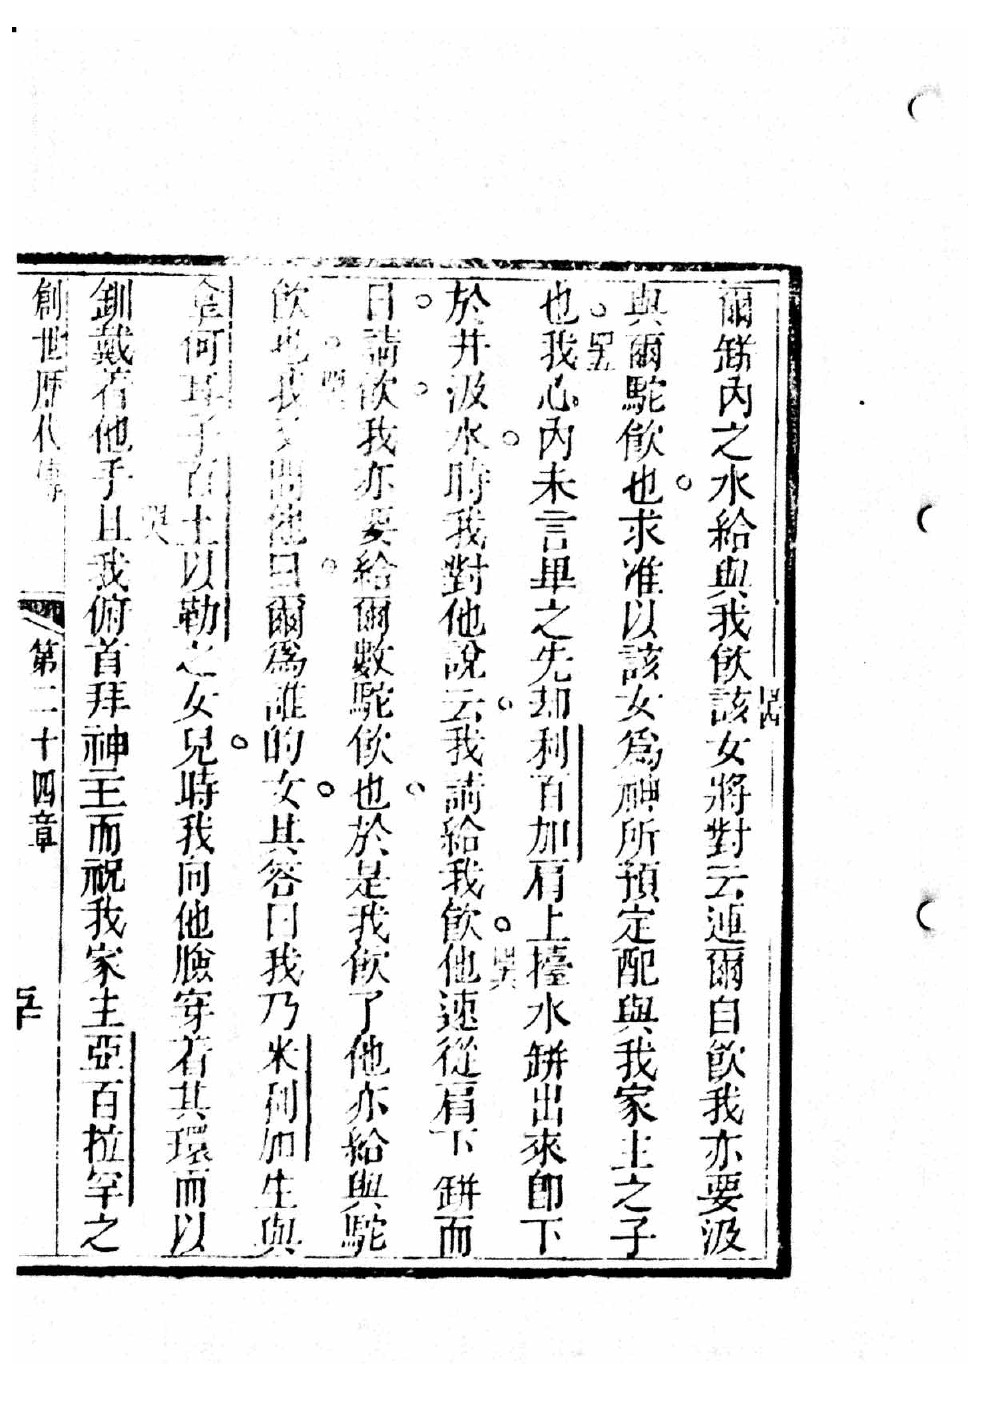 爾缾內之水給與我飲該女將對云連爾自飲我亦要汲
與爾駝飲也求准以該女爲神所預定配與我家主之子
也我心內未言畢之先却利百加肩上擡水缾出來卽下
於井汲水時我對他說云我請給我飲他速從肩下缾而
曰請飲我亦要給爾數駝飲也於是我飲了他亦給與駝
飲也我又問他曰爾爲誰的女其答曰我乃米利加生與
何耳子百土以勒之女兒時我向他臉穿着其環而以
釧戴着他手且我俯首拜神主而祝我家主亞百拉罕之
創世歷代傳 第二十四章 五十